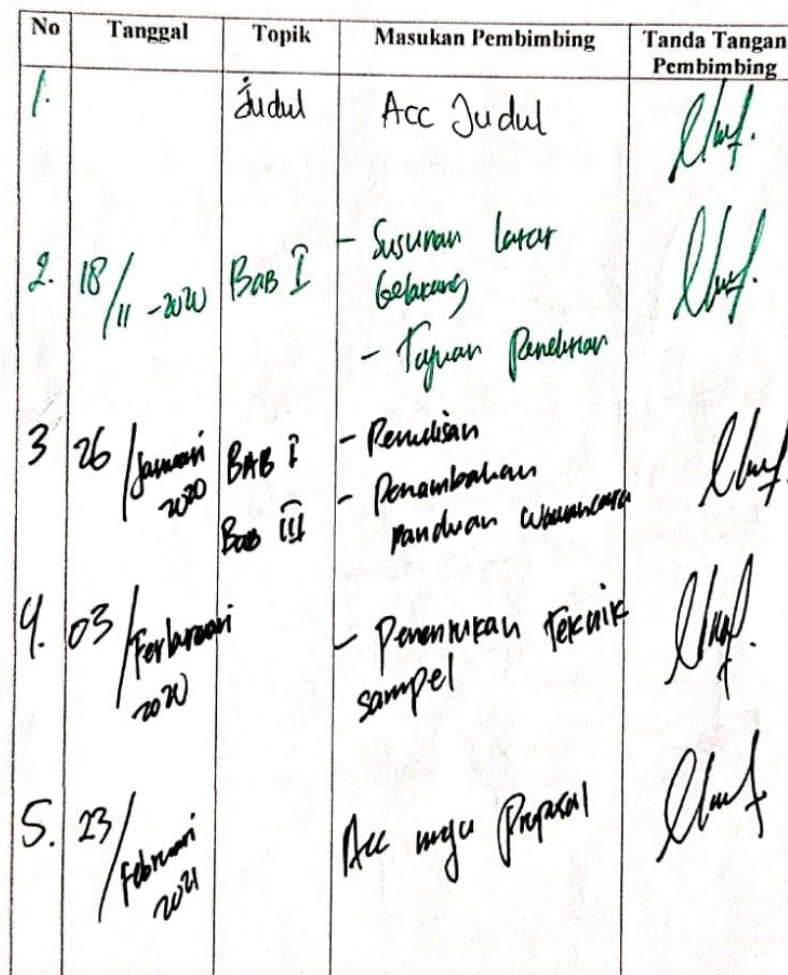 No Tanggal Topik Masukan Pembimbing Tanda Tangan Pembimbing
1. Judul Acc Judul
2. 18/11-2020 BAB I - Susunan latar
belakang
- Tujuan Penelitian
3 26/Januari 2020 BAB I - Penulisan
Bab III - Penambahan
panduan wawancara
4. 03/Ferbaruari 2020 - Penentukan Teknik
sampel
5. 23/Februari 2021 Acc maju Proposal